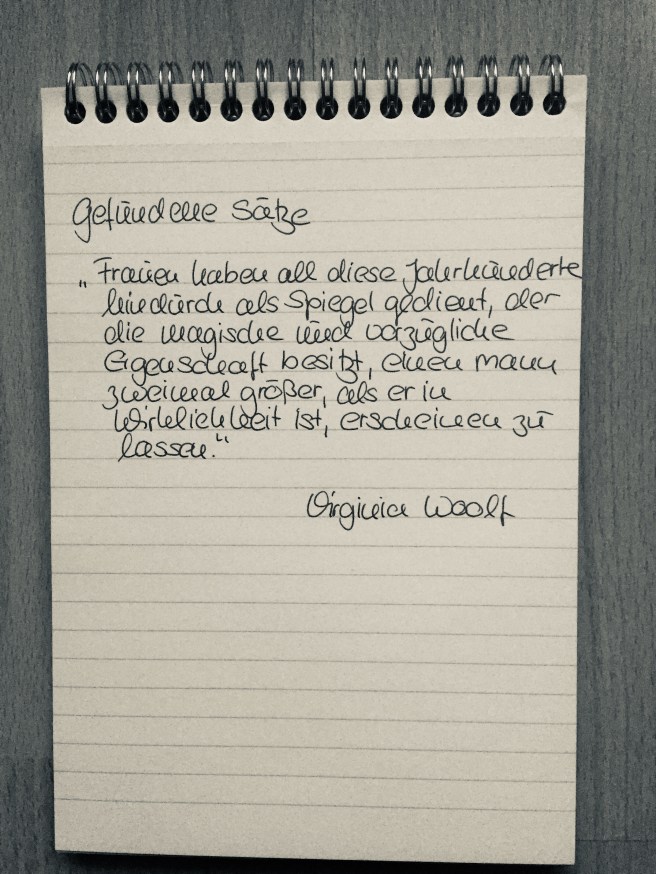 Gefundene Sätze
„Frauen haben all diese Jahrhunderte
hindurch als Spiegel gedient, der
die magische und vorzügliche
Eigenschaft besitzt, einen Mann
zweimal größer, als er in
Wirklichkeit ist, erscheinen zu
lassen."
Virginia Woolf